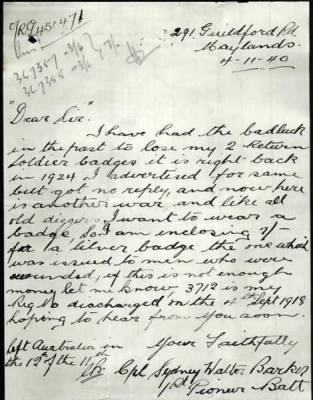 291 Guildford Rd.
Maylands.
4-11-40
367357 - 3/6
367358 - 3/6
7/-
"Dear Sir."
I have had the badluck
in the past to lose my 2 Return
Soldier badges it is right back
in 1924 I advertised for same
but got no reply, and now here
is another war, and like all
old diggers I want to wear a
badge, so I am inclosing 7/-
for 1a silver badge the one which
was issued to men who were
wounded, if this is not enough
money let me know, 3712 is my
Reg No discharged on the 4th Sept 1918
hoping to hear from you soon.
Yours Faithfully
left Australia in
the 12th of the 11th
Cpl Sydney Walter Barker
Pioneer Batt